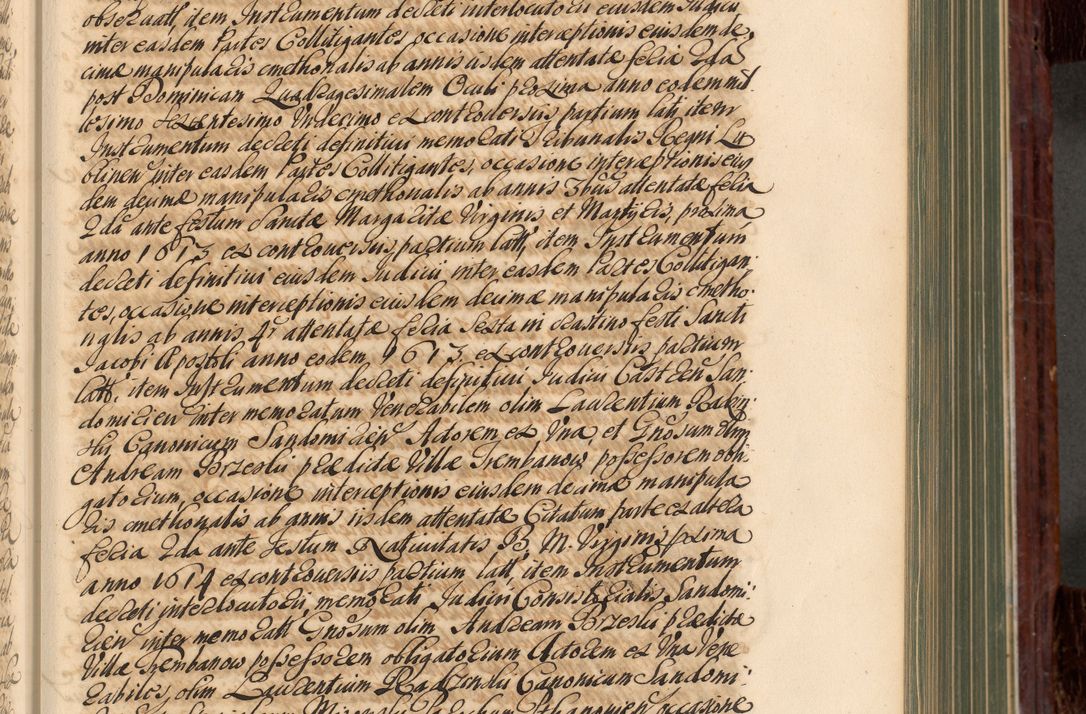 obseruatt, item Instrumentum decreti interlocutorii eiusdem Iudicii
inter easdem Partes Collitigantes occasione interceptionis eiusdem de,
cimæ manipularis cmethonalis ab annis iisdem attentatæ feria 2da
post Dominicam Quadragesimalem Oculi proxima anno eodem mil
lesimo sexcentesimo Vndecimo ex controversiis partium latt, item
Instrumentum decreti definitiui memorati Tribunalis Regni Lu
blinen inter easdem Partes Collitigantes, occasione interceptionis eius
dem decimæ manipularis cmethonalis ab annis 3bus attentatæ feria
2da ante festum Sanctæ Margaritæ Virginis et Martyris, proxima
anno 1613 ex controuersiis partium latt, item Instrumentum
decreti definitiui eiusdem Iudicii inter easdem Partes Collitigan:
tes, occasione interceptionis eiusdem decimæ manipularis cmetho:
nalis ab annis 4r attentatæ feria Sexta in crastino festi Sancti
Iacobi Apostoli anno eodem 1613 ex controuersiis partium
latt, item Instrumentum decreti definitiui Iudicii Castren San:
domirien inter memoratum Venerabilem olim Laurentium
Canonicum Sandomirien Actorem ex Vna, et Gnosum olim
Andream Brzeski prædictæ Villæ Trembanow possessorem obli:
gatorium, occasione interceptionis eiusdem decimæ manipula
ris cmethonalis ab annis iisdem attentatæ Citatum parte ex altera
feria 2da ante Festum Natiuitatis B. M. Virginis proxima
anno 1614 ex controuersiis partium latt, item Instrumentum
decreti interlocutorii, memorati Iudicii Consistorialis Sandomi:
rien inter memoratt Gnosum olim Andream Brzeski prædictæ
Villæ Trembanow possessorem obligatorium Actorem ex Vna Vene
rabiles, olim Laurentium Radzinski Canonicum Sandomi:
occasione